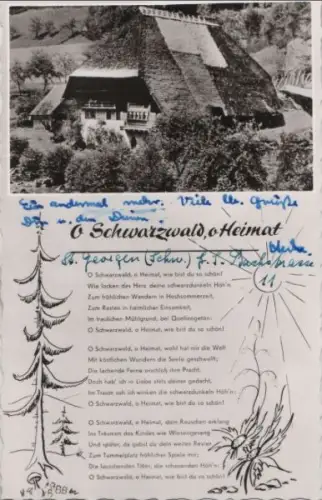 Ein andermal mehr. Viele lb. Grüße
Dir u. den Deinen.
O Schwarzwald, o Heimat
St. Georgen (Schw.)
11
O Schwarzwald, o Heimat, wie bist du so schön!
Wie locken das Herz deine schwarzdunkeln Höh'n
Zum fröhlichen Wandern in Hochsommerzeit,
Zum Rasten in heimlicher Einsamkeit,
Im traulichen Mühlgrund, bei Quellengetön:
O Schwarzwald, o Heimat, wie bist du so schön!
O Schwarzwald, o Heimat, wohl hat mir die Welt
Mit köstlichen Wundern die Seele geschwellt;
Die lachende Ferne erschloß ihre Pracht.
Doch hab' ich in Liebe stets deiner gedacht,
Im Traum sah ich winken die schwarzdunkeln Höh'n:
O Schwarzwald, o Heimat, wie bist du so schön!
O Schwarzwald, o Heimat, dein Rauschen erklang
Im Träumen des Kindes wie Wiegengesang
Und später, da gabst du dein weites Revier
Zum Tummelplatz fröhlicher Spiele mir;
Die lauschenden Täler, die schauenden Höh'n:
O Schwarzwald, o Heimat, wie bist du so schön!